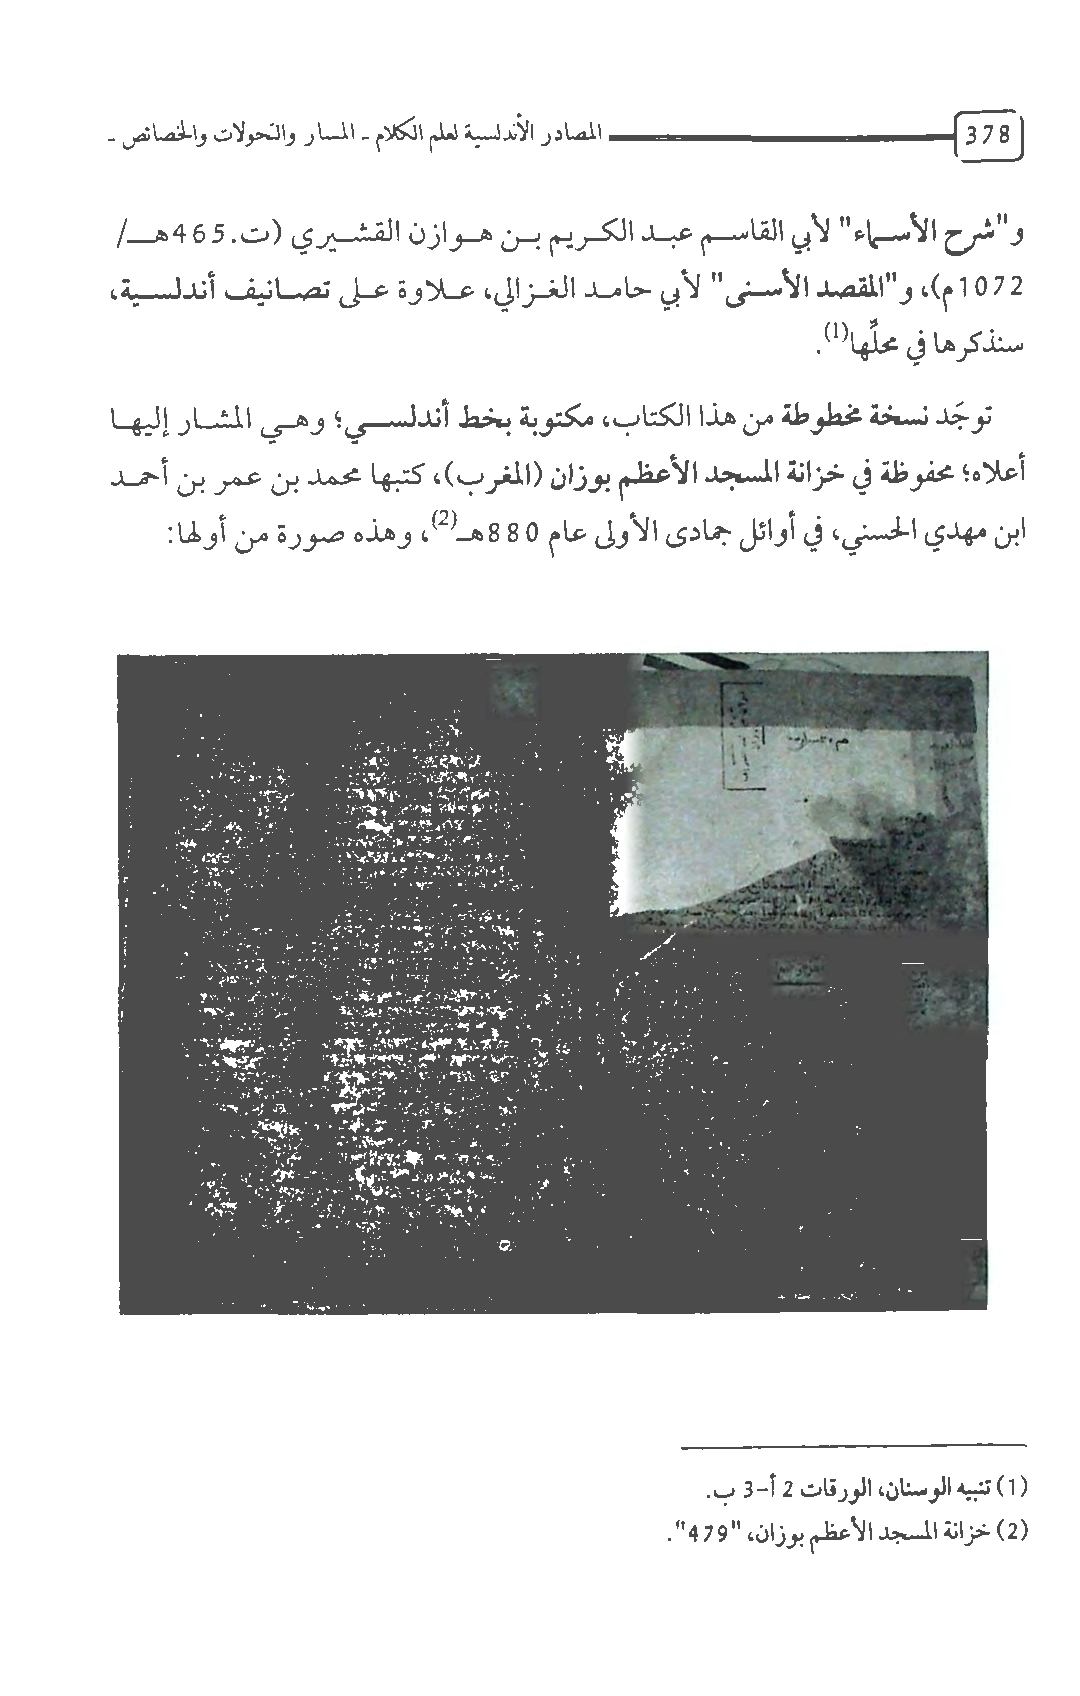 378 المصادر الأندلسية لعلم الكلام - المسار والتحولات والخصائص -
و"شرح الأسماء" لأبي القاسم عبد الكريم بن هوازن القشيري (ت.465هـ/
1072م)، و"المقصد الأسنى" لأبي حامد الغزالي، علاوة على تصانيف أندلسية،
سنذكرها في محلِّها(1).
توجَد نسخة مخطوطة من هذا الكتاب، مكتوبة بخط أندلسي؛ وهي المشار إليها
أعلاه؛ محفوظة في خزانة المسجد الأعظم بوزان (المغرب)، كتبها محمد بن عمر بن أحمد
ابن مهدي الحسني، في أوائل جمادى الأولى عام 880هـ(2)، وهذه صورة من أولها:
(1) تنبيه الوسنان، الورقات 2 أ-3 ب.
(2) خزانة المسجد الأعظم بوزان، "479".